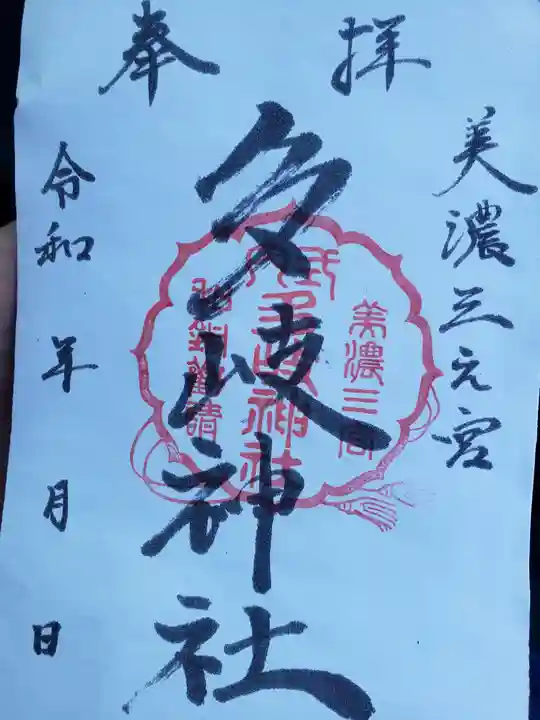 奉拝
美濃三之宮
多岐神社
美濃三宮
多岐神社
令和 年 月 日